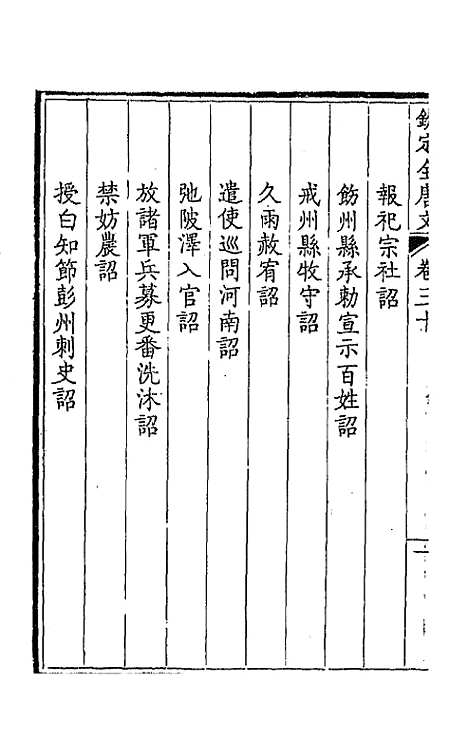 欽定全唐文
卷三十
報祀宗社詔
飭州縣承勅宣示百姓詔
戒州縣牧守詔
久雨赦宥詔
遣使巡問河南詔
弛陂澤入官詔
放諸軍兵募更番洗沐詔
禁妨農詔
授白知節彭州刺史詔